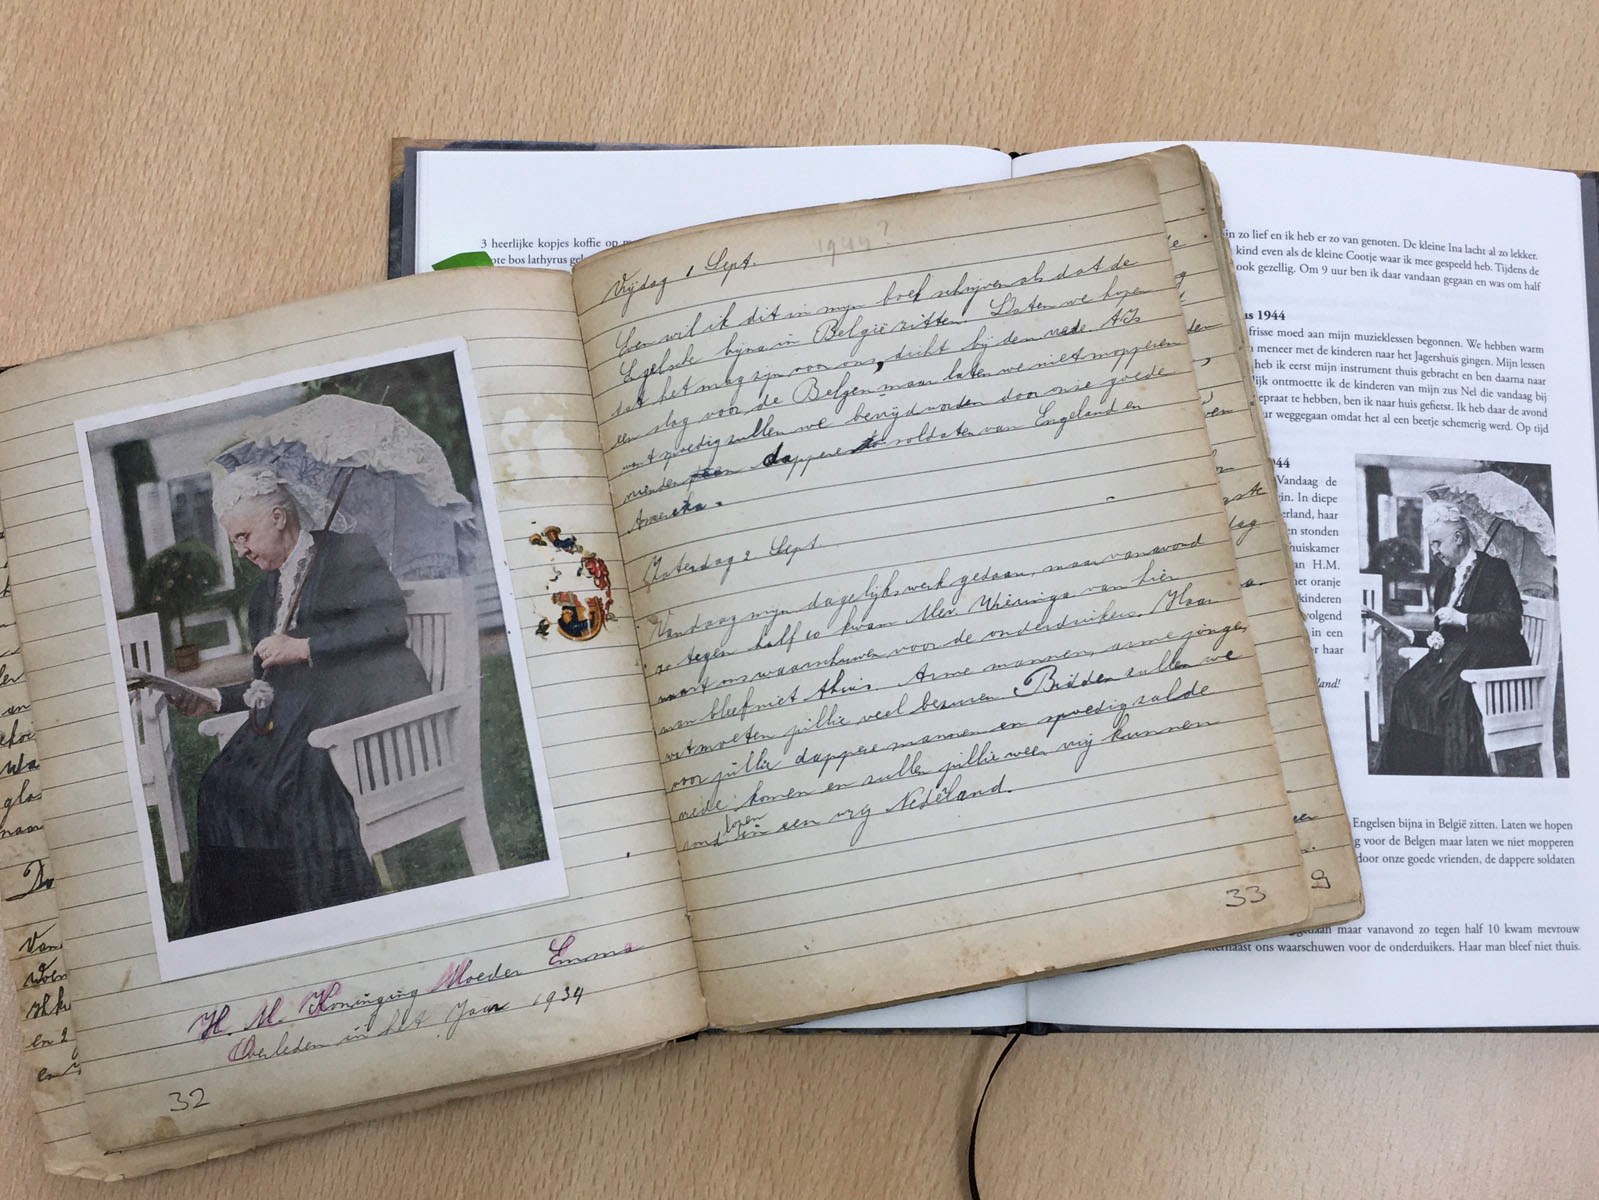 H. M. Koninging Moeder Emma
Overleden in het Jaar 1934
32
1944?
Vrijdag 1 Sept.
Even wil ik dit in mijn boek schrijven als dat de
Egelsche bijna in België zitten. Laten we hopen
dat het mag zijn voor ons, dicht bij den vrede. 't Is
een slag voor de Belgen, maar laten we niet mopperen
want spoedig zullen we bevrijd worden door onze goede
vrienden dappere soldaten van Engeland en
Amereka.
Zaterdag 2 Sept
Vandaag mijn dagelijks werk gedaan, maar vanavond
zo tegen half 10 kwam Mev Wieringa van hier
naast ons waarschuwen voor de onderduikers. Haar
man bleef niet thuis. Arme mannen, arme jongens
wat moeten jullie veel bezuren. Bidden zullen we
voor jullie dappere mannen en spoedig zal de
vrede komen en zullen jullie weer vrij kunnen
rond lopen in een vrij Nederland.
33
9
3 heerlijke kopjes koffie op
bos lathyrus
zo lief en ik heb er zo van genoten. De kleine Ina lacht al zo lekker.
kind even als de kleine Cootje waar ik mee gespeeld heb. Tijdens de
ook gezellig. Om 9 uur ben ik daar vandaan gegaan en was om half
1944
frisse moed aan mijn muzieklessen begonnen. We hebben warm
meneer met de kinderen naar het Jagershuis gingen. Mijn lessen
heb ik eerst mijn instrument thuis gebracht en ben daarna naar
ontmoette ik de kinderen van mijn zus Nel die vandaag bij
gepraat te hebben, ben ik naar huis gefietst. Ik heb daar de avond
weggegaan omdat het al een beetje schemerig werd. Op tijd
Vandaag de
In diepe
haar
stonden
H.M.
oranje
kinderen
volgend
in een
haar
Engelsen bijna in België zitten. Laten we hopen
voor de Belgen maar laten we niet mopperen
door onze goede vrienden, de dappere soldaten
gedaan maar vanavond zo tegen half 10 kwam mevrouw
ons waarschuwen voor de onderduikers. Haar man bleef niet thuis.